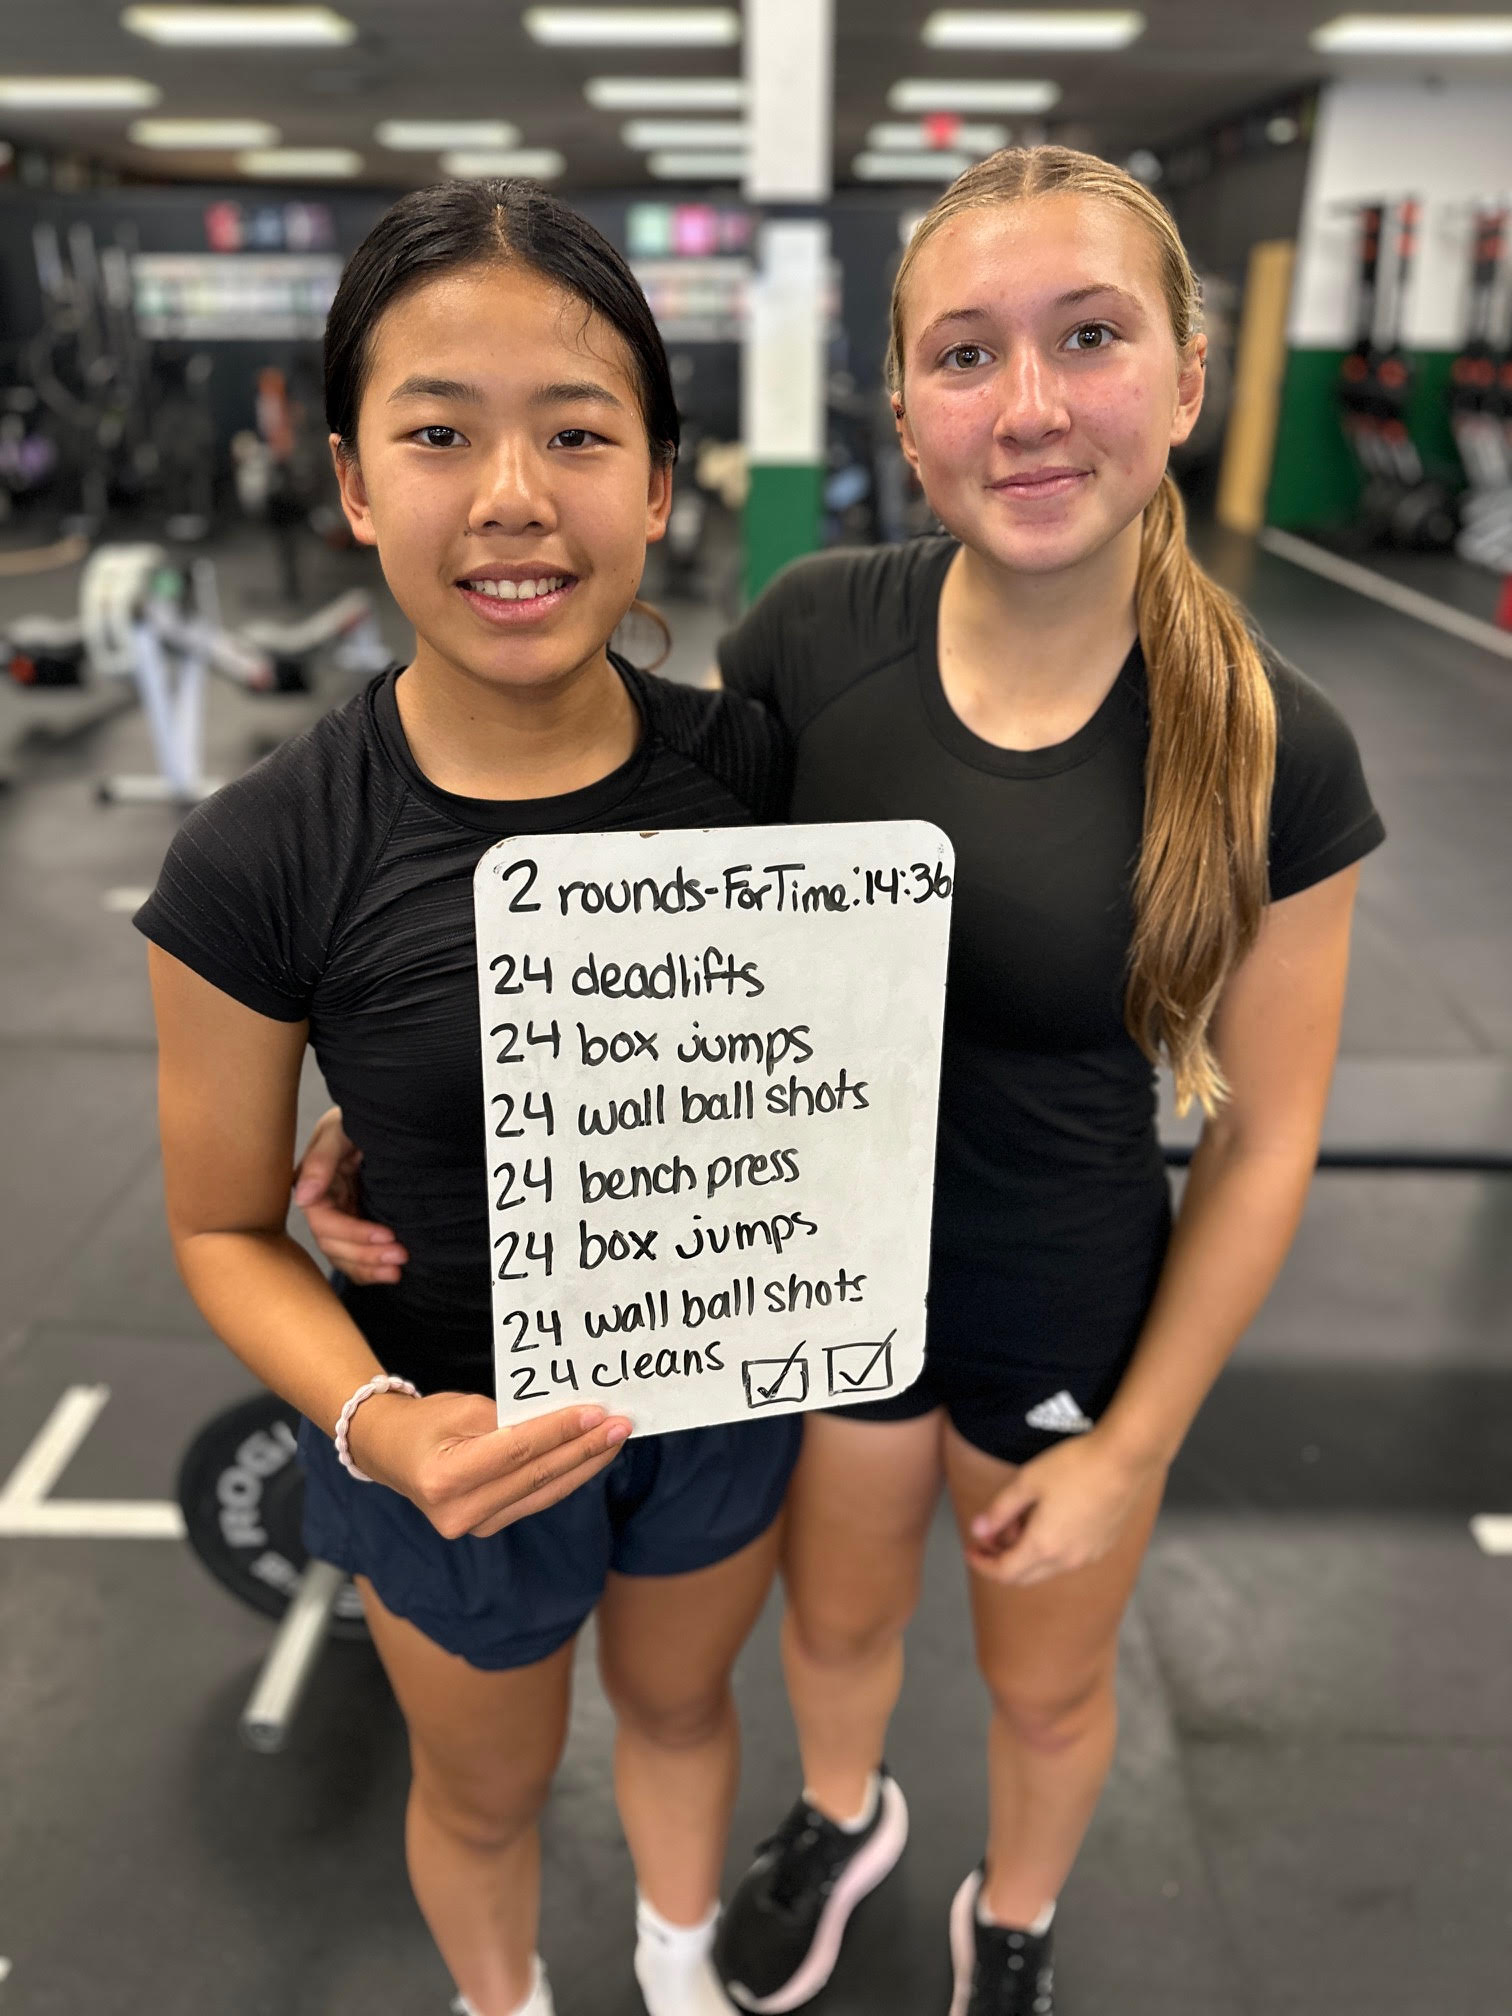 2 rounds-For Time: 14:36
24 deadlifts
24 box jumps
24 wall ball shots
24 bench press
24 box jumps
24 wall ball shots
24 cleans
adidas
ROGU